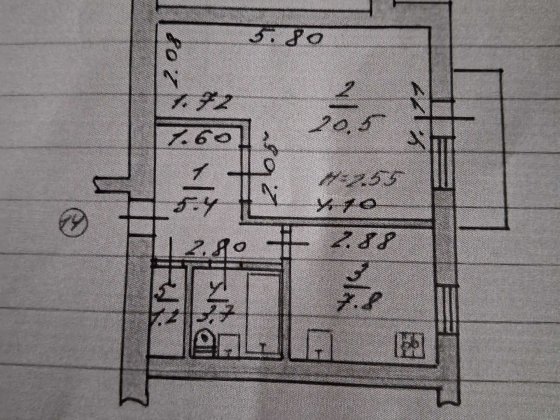 5.80
2.08
1.72
2
20.5
4.11
1.60
2.05
1
5.4
H=2.55
4.10
14
2.80
2.88
3
7.8
5
1.2
4
3.7